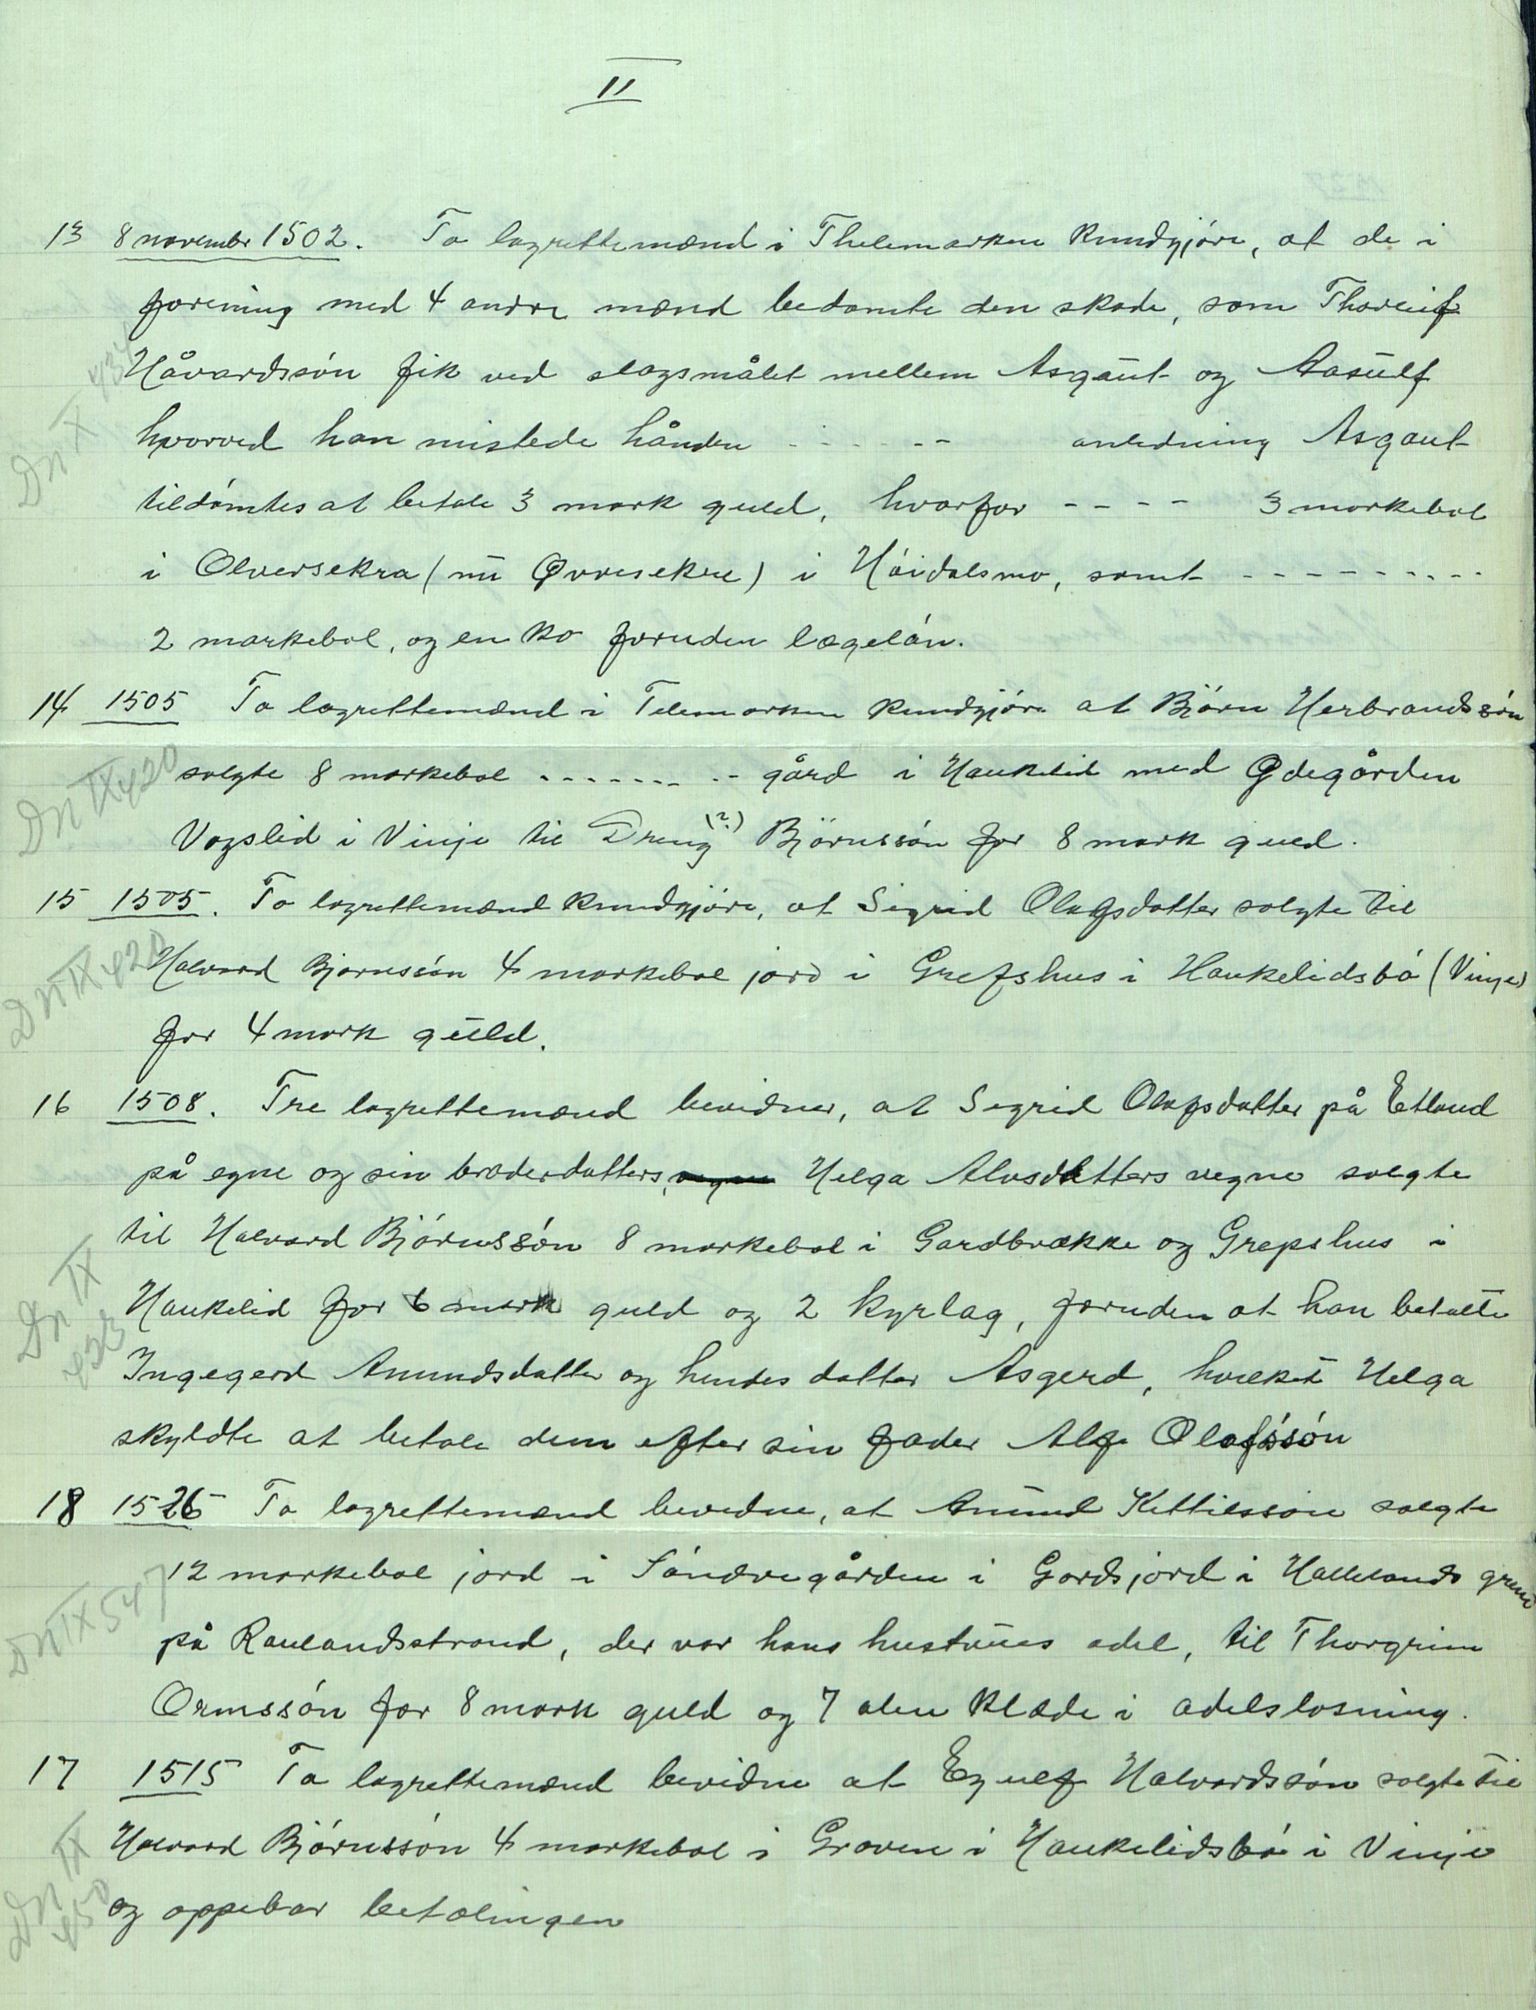 II
13 8 novembr 1502. To lagrettemænd i Thelemarken kundgjóre, at de i
forening med 4 andre mænd bedømte den skade, som Thorleif
Håvardssón fik ved slagsmålet mellem Asgaut og Aasulf
hvorved han mistede hånden - - - - - - anledning Asgaut
tildómtes at betale 3 mark guld, hvorfor - - - - 3 markebol
i Olversekra (nu Øvresekre) i Hóidalsmo, samt - - - - - - - - -
2 markebol, og en ko foruden lægelón.
14 1505 To lagrettemænd i Telemarken kundgjóre at Björn Herbrandssón
solgte 8 markebol - - - - - - - - - gård i Haukelid med Ødegården
Vagslid i Vinje til Dreng (?) Björnssón for 8 mark guld.
15 1505. To lagrettemænd kundgjóre, at Sigrid Olafsdatter solgte til
Halvard Bjornssón 4 markebol jord i Grefshus i Haukelidsbó (Vinje)
for 4 mark guld.
16 1508. Tre lagrettemænd bevidner, at Sigrid Olafsdatter på Etland
på egne og sin broderdatters, Helga Alvsdatters vegne solgte
til Halvard Bjórnssón 8 markebol i Gardbrække og Grepshus i
Haukelid for 6 mark guld og 2 kyrlag, foruden at han betalte
Ingegerd Amundsdatter og hendes datter Asgerd, hvilket Helga
skyldte at betale dem efter sin fader Alf Olafssón
18 1526 To lagrettemænd bevidne, at Amund Kettilssón solgte
12 markebol jord i Sóndregården i Gardsjord i Hallelands grend
på Raulandsstrand, der var hans hustrues odel, til Thorgrim
Ormssón for 8 mark guld og 7 alen klæde i odelslosning.
17 1515 To lagrettemænd bevidne at Eyulf Halvardssón solgte til
Halvard Bjórnssón 4 markebol i Graven i Haukelidsbó i Vinje
og oppebar betalingen
DN IX 434
DN IX 420
DN IX 420
DN IX 423
DN IX 547
DN IX 450